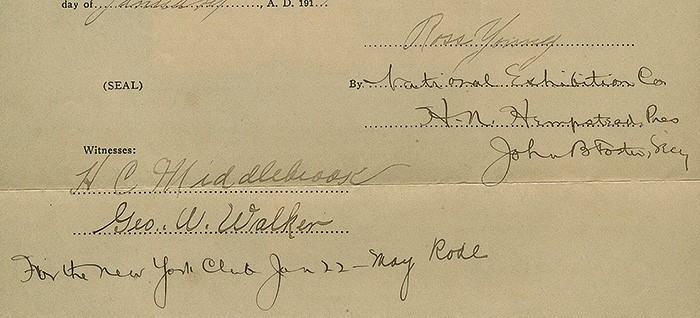 day of January, A. D. 191...
Ross Young
(SEAL)
By National Exhibition Co
H. N. Hempstead, Pres
John B Foster, Secy
Witnesses:
H C Middlebrook
Geo. W. Walker
For the New York Club Jan 22 - May Rode